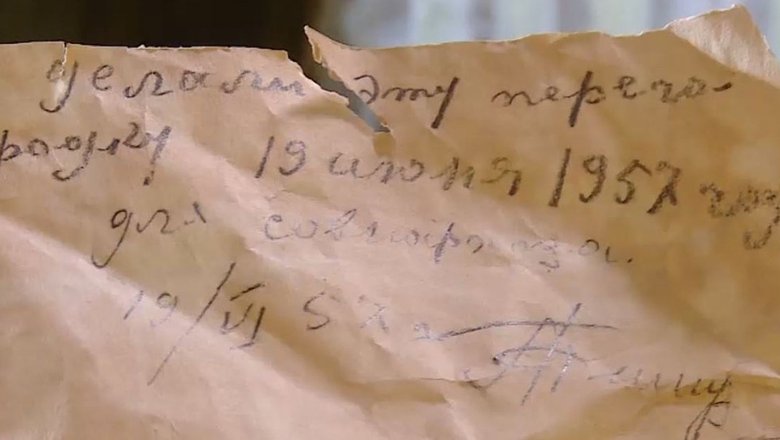 делали эту перего-
родку 19 июня 1957 год
для совнархоза.
19/VI 57 г